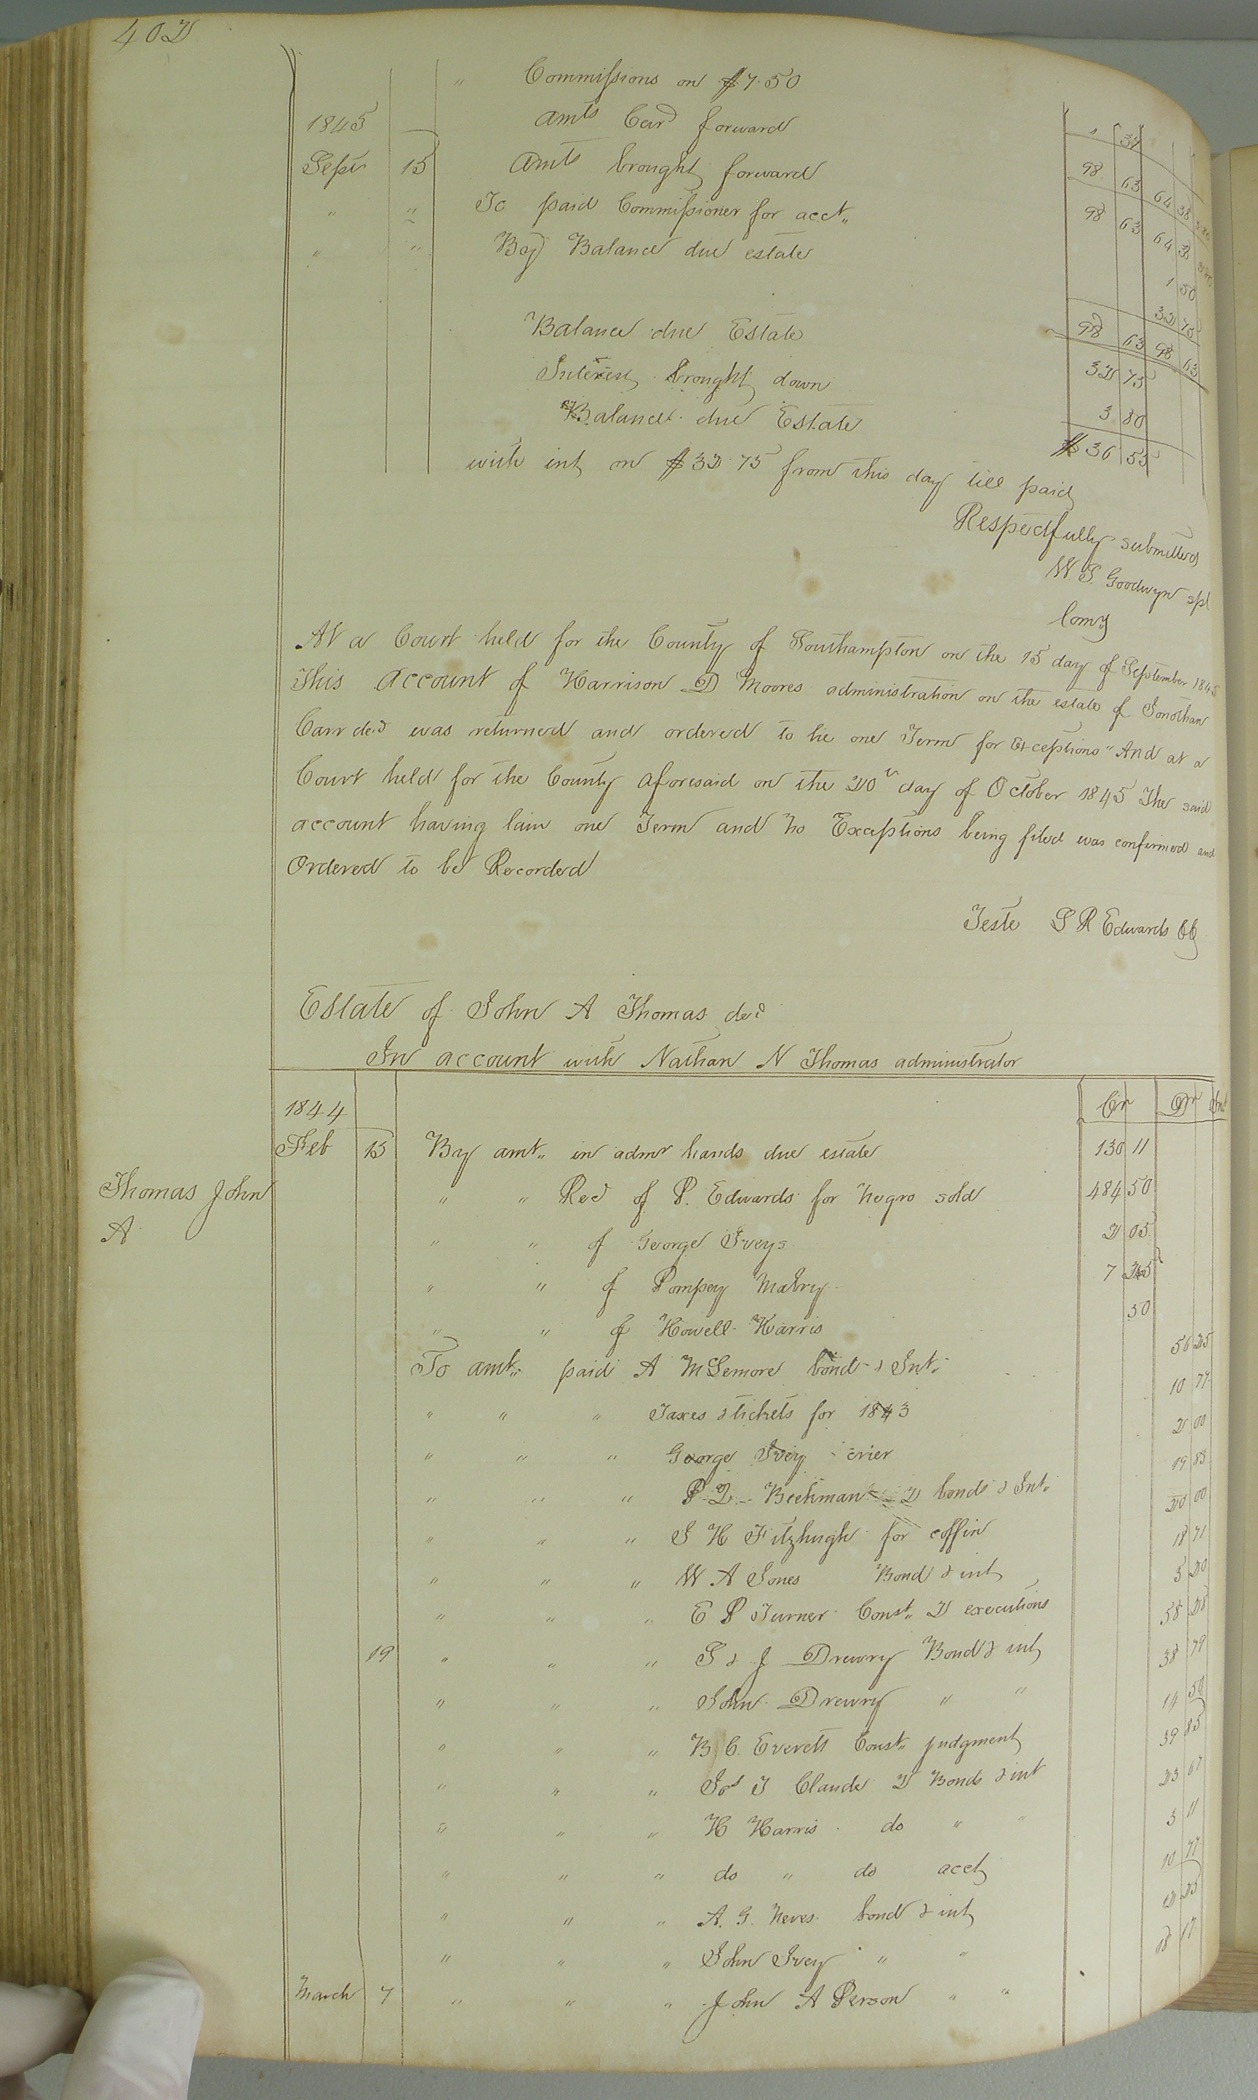 402
" Commissions on $7.50 " 37
1845 amts Card forward 98 63 64 38
Sept 15 amts brought forward 98 63 64 38
" " To paid Commissioner for acct" 1 50
" " By Balance due estate 32 75
98 63 98 63
Balance due Estate 32 75
Interest brought down 3 80
Balance due Estate $36 55
with int on $32.75 from this day till paid
Respectfully submitted
W S. Goodwyn spl
Comy
At a Court held for the County of Southampton on the 15 day of September 1845
This account of Harrison D Moores administration on the estate of Jonothan
Carr decd was returned and ordered to lie one Term for Exceptions" And at a
Court held for the County aforesaid on the 20th day of October 1845 The said
account having lain one Term and no Exceptions being filed was confirmed and
Ordered to be Recorded
Teste S R Edwards CC
Estate of John A Thomas decd
In account with Nathan N Thomas administrator
1844 Cr Dr Int
Feb 15 By amt" in admr hands due estate 130 11
Thomas John
A
" " Recd of P. Edwards for negro sold 484 50
" " of George Iveys 2 05
" " of Pompey Mabry 7
" " of Howell Harris 50
To amt" paid A McLemore bond & Int" 56 25
" " " Taxes & tickets for 1843 10 77
" " " George Ivey crier 2 00
" " " P. Q. Beekman 2 bonds & Int" 19 83
" " " S H Fitzhugh for coffin 20 00
" " " W A Jones Bond & int 18 71
" " " E P Turner Const" 2 executions 5 20
19 " " " S & J Drewry Bond & int 58 28
" " " John Drewry " " 38 79
" " " B C. Everett Const" judgment 14 50
" " " Jos T Claude 2 Bonds & int 39 85
" " " H Harris do " " 23 67
" " " do " do acct 3 11
" " " A. G. Neves bond & int 10 77
" " " John Ivey " "
March 7 " " " John A Person " " 17